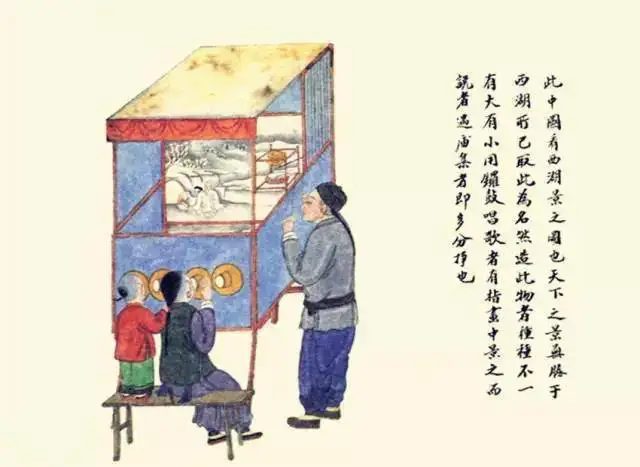 此中國看西湖景之圖也天下之景無勝于
西湖所已取此為名然造此物者種種不一
有大有小用鑼鼓唱歌者有指畫中景之而
說者遇庙集者即多分掙也